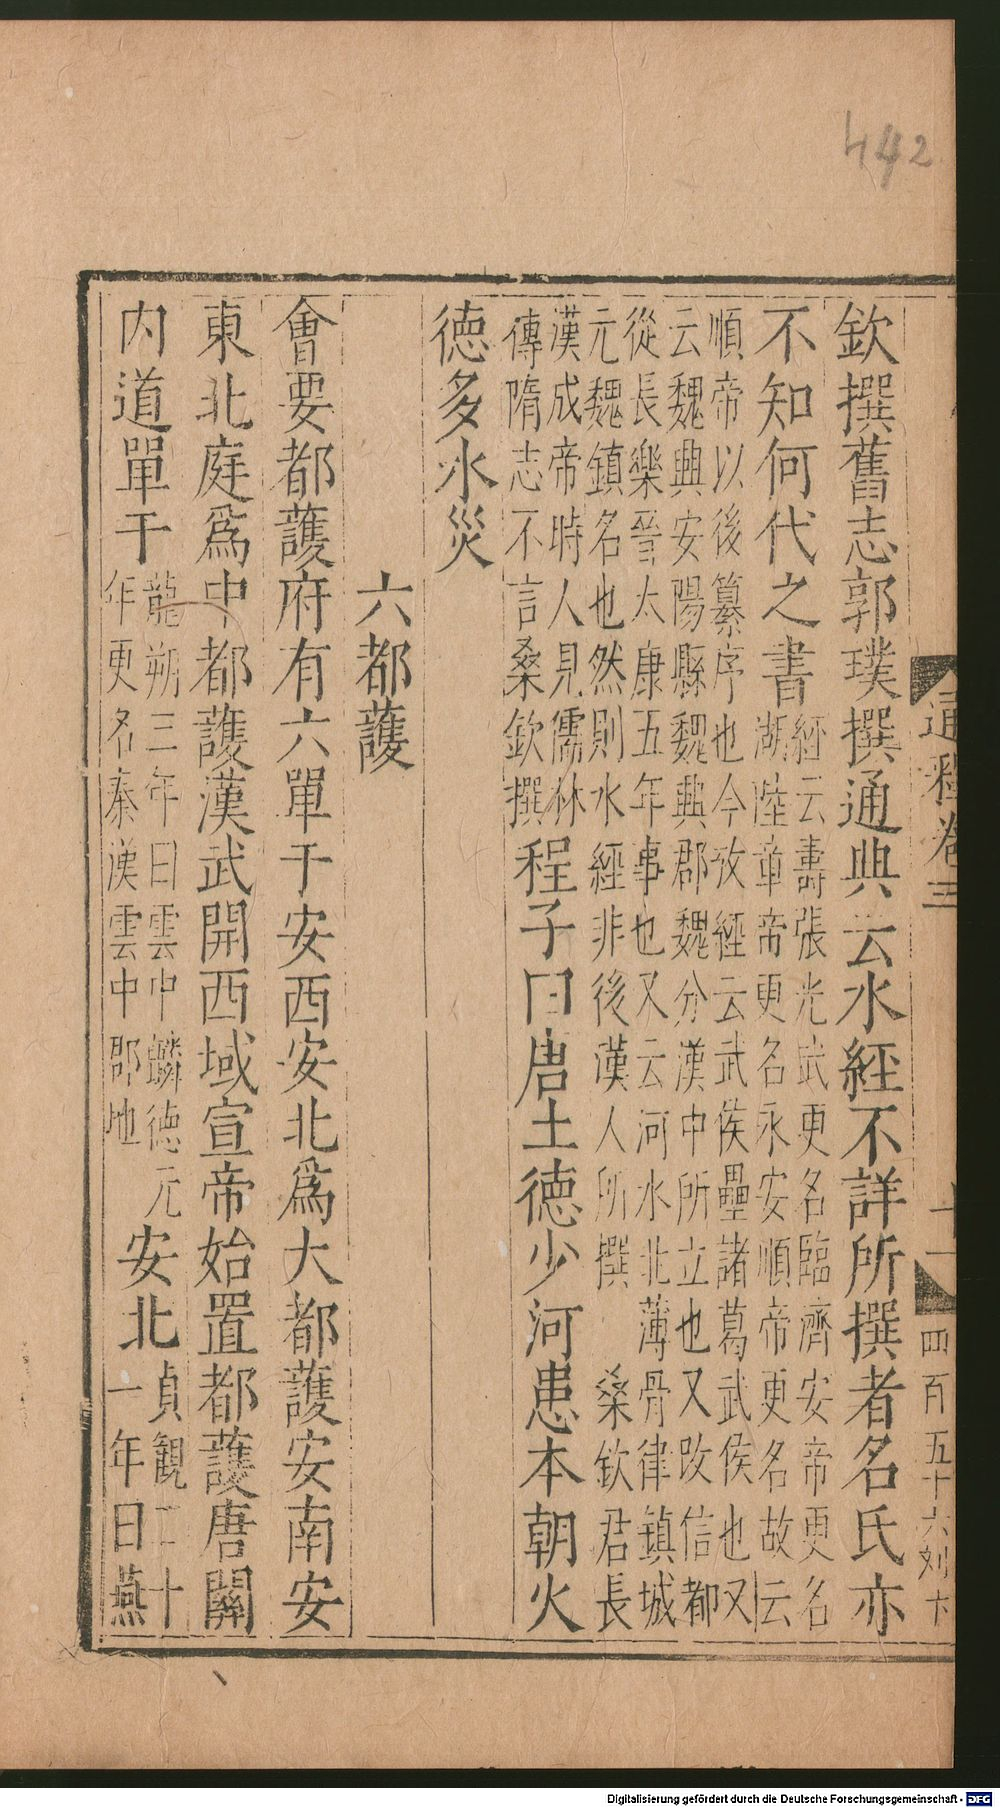 442
通釋卷三 十一 四百五十六 刘卞
欽撰舊志郭璞撰通典云水經不詳所撰者名氏亦
不知何代之書經云壽張光武更名臨濟安帝更名
湖陸章帝更名永安順帝更名故云
順帝以後纂序也今攷經云武侯壘諸葛武侯也又
云魏興安陽縣魏興郡魏分漢中所立也又改信都
從長樂晉太康五年事也又云河水北薄骨律鎮城
元魏鎮名也然則水經非後漢人所撰 桑欽君長
漢成帝時人見儒林
傳隋志不言桑欽撰程子曰唐土徳少河患本朝火
徳多水災
六都護
會要都護府有六單于安西安北爲大都護安南安
東北庭爲中都護漢武開西域宣帝始置都護唐關
内道單于龍朔三年曰雲中麟徳元
年更名秦漢雲中郡地安北貞觀二十
一年曰燕
Digitalisierung gefördert durch die Deutsche Forschungsgemeinschaft - DFG